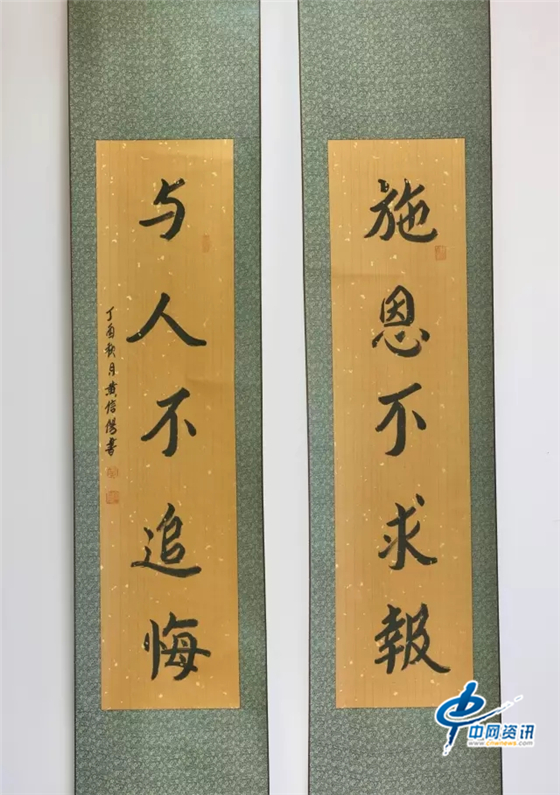 施恩不求報
与人不追悔
丁酉秋月黄信阳书
中网资讯
www.cnwnews.com